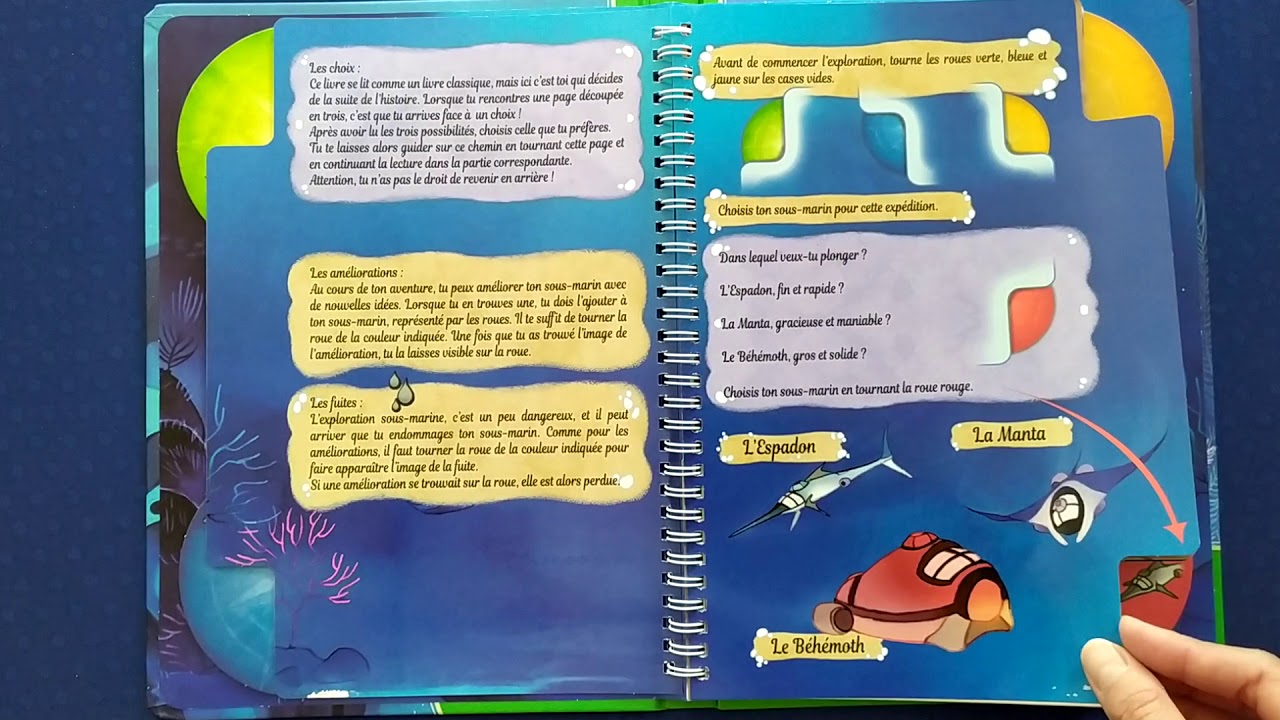 Les choix :
Ce livre se lit comme un livre classique, mais ici c'est toi qui décides
de la suite de l'histoire. Lorsque tu rencontres une page découpée
en trois, c'est que tu arrives face à un choix !
Après avoir lu les trois possibilités, choisis celle que tu préfères.
Tu te laisses alors guider sur ce chemin en tournant cette page et
en continuant la lecture dans la partie correspondante.
Attention, tu n'as pas le droit de revenir en arrière !
Les améliorations :
Au cours de ton aventure, tu peux améliorer ton sous-marin avec
de nouvelles idées. Lorsque tu en trouves une, tu dois l'ajouter à
ton sous-marin, représenté par les roues. Il te suffit de tourner la
roue de la couleur indiquée. Une fois que tu as trouvé l'image de
l'amélioration, tu la laisses visible sur la roue.
Les fuites :
L'exploration sous-marine, c'est un peu dangereux, et il peut
arriver que tu endommages ton sous-marin. Comme pour les
améliorations, il faut tourner la roue de la couleur indiquée pour
faire apparaître l'image de la fuite.
Si une amélioration se trouvait sur la roue, elle est alors perdue.
Avant de commencer l'exploration, tourne les roues verte, bleue et
jaune sur les cases vides.
Choisis ton sous-marin pour cette expédition.
Dans lequel veux-tu plonger ?
L'Espadon, fin et rapide ?
La Manta, gracieuse et maniable ?
Le Béhémoth, gros et solide ?
Choisis ton sous-marin en tournant la roue rouge.
L'Espadon
La Manta
Le Béhémoth